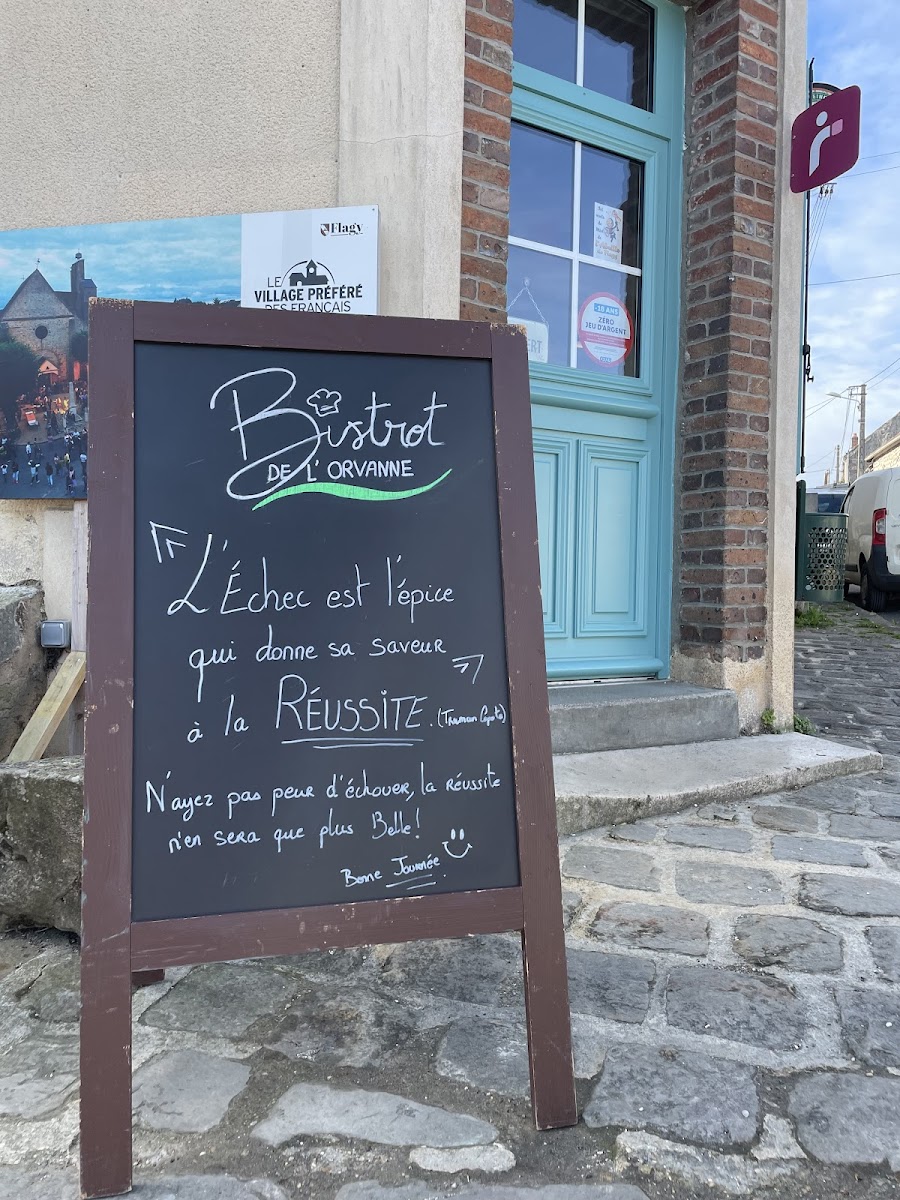 Flagy
LE
VILLAGE PRÉFÉRÉ
DES FRANÇAIS
-18 ANS
ZÉRO
JEU D'ARGENT
Bistrot
DE L'ORVANNE
L'Échec est l'épice
qui donne sa saveur
à la RÉUSSITE. (Truman Capote)
N'ayez pas peur d'échouer, la réussite
n'en sera que plus Belle!
Bonne Journée